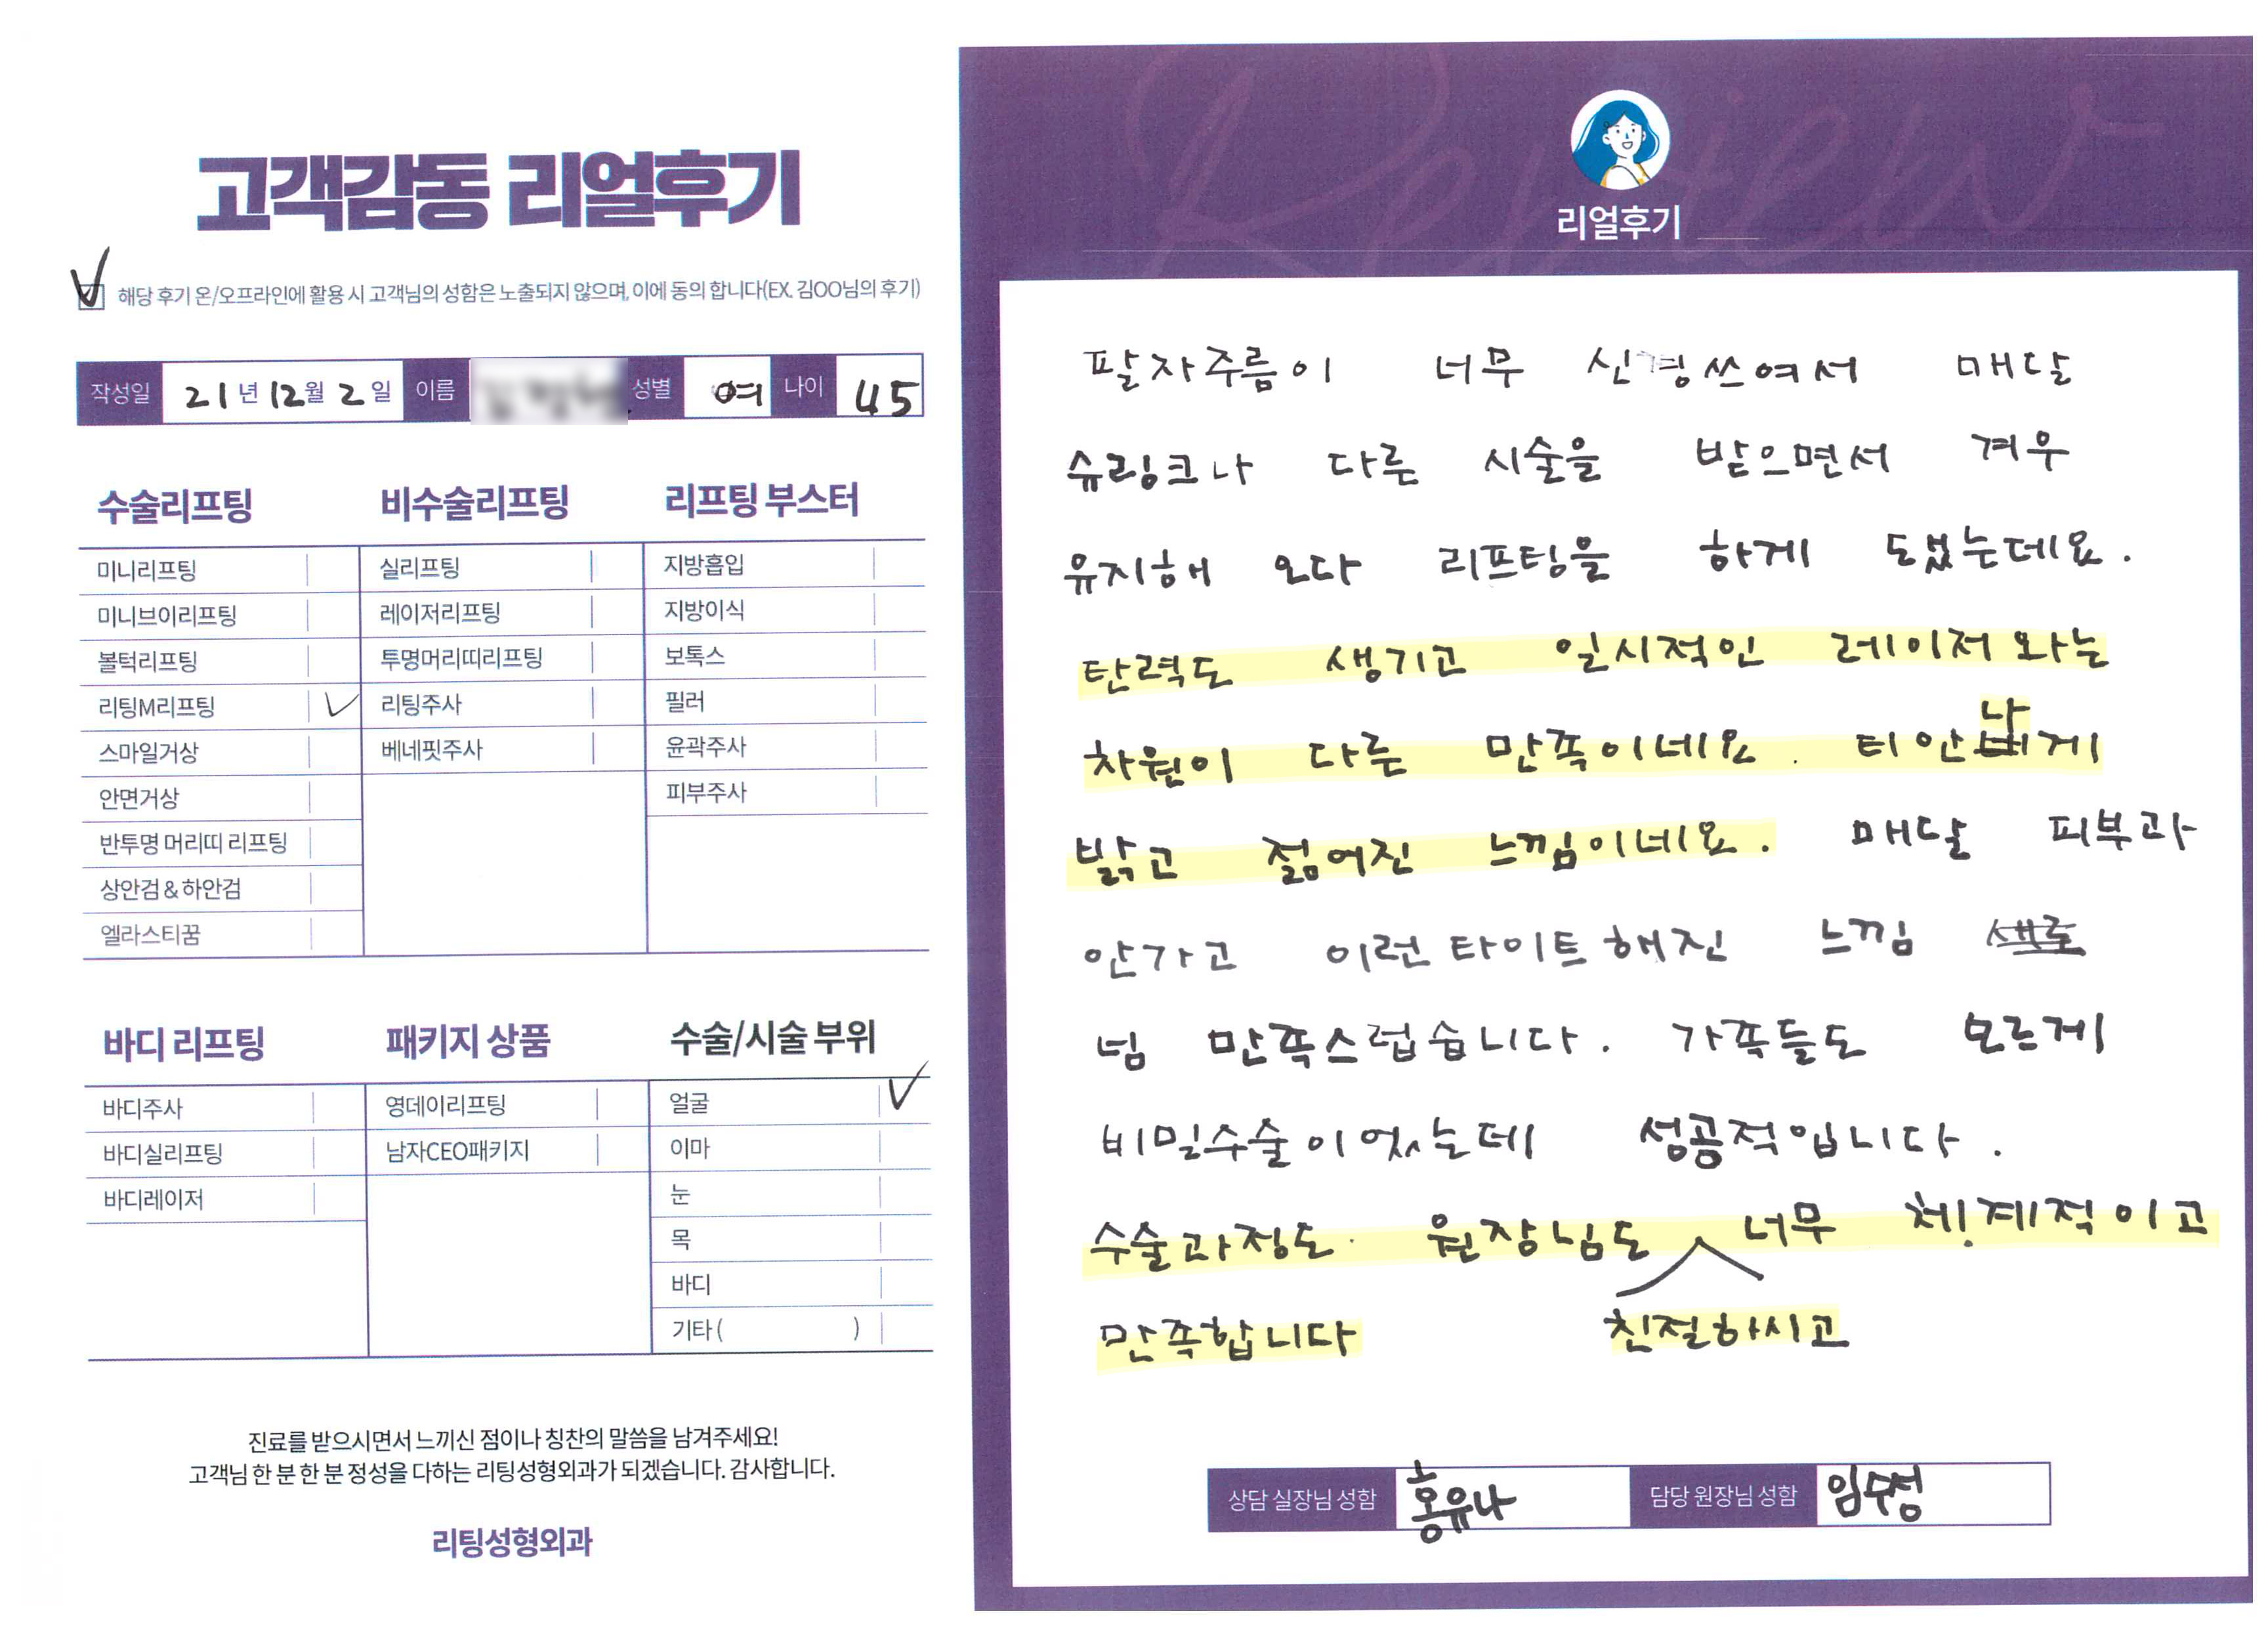 고객감동 리얼후기
해당 후기 온/오프라인에 활용 시 고객님의 성함은 노출되지 않으며, 이에 동의 합니다(EX. 김OO님의 후기)
작성일 21년 12월 2일 이름 성별 여 나이 45
수술리프팅
미니리프팅
미니브이리프팅
볼턱리프팅
리팅M리프팅
스마일거상
안면거상
반투명 머리띠 리프팅
상안검 & 하안검
엘라스티꿈
비수술리프팅
실리프팅
레이저리프팅
투명머리띠리프팅
리팅주사
베네핏주사
리프팅 부스터
지방흡입
지방이식
보톡스
필러
윤곽주사
피부주사
바디 리프팅
바디주사
바디실리프팅
바디레이저
패키지 상품
영데이리프팅
남자CEO패키지
수술/시술 부위
얼굴
이마
눈
목
바디
기타 ( )
진료를 받으시면서 느끼신 점이나 칭찬의 말씀을 남겨주세요!
고객님 한 분 한 분 정성을 다하는 리팅성형외과가 되겠습니다. 감사합니다.
리팅성형외과
Review
리얼후기
팔자주름이 너무 신경쓰여서 매달
슈링크나 다른 시술을 받으면서 겨우
유지해 오다 리프팅을 하게 됬는데요.
탄력도 생기고 일시적인 레이저와는
차원이 다른 만족이네요. 티안나게
밝고 젊어진 느낌이네요. 매달 피부과
안가고 이런 타이트해진 느낌
넘 만족스럽습니다. 가족들도 모르게
비밀수술이었는데 성공적입니다.
수술과정도 원장님도 너무 체계적이고
만족합니다 친절하시고
상담 실장님 성함 홍유나 담당 원장님 성함 임수성